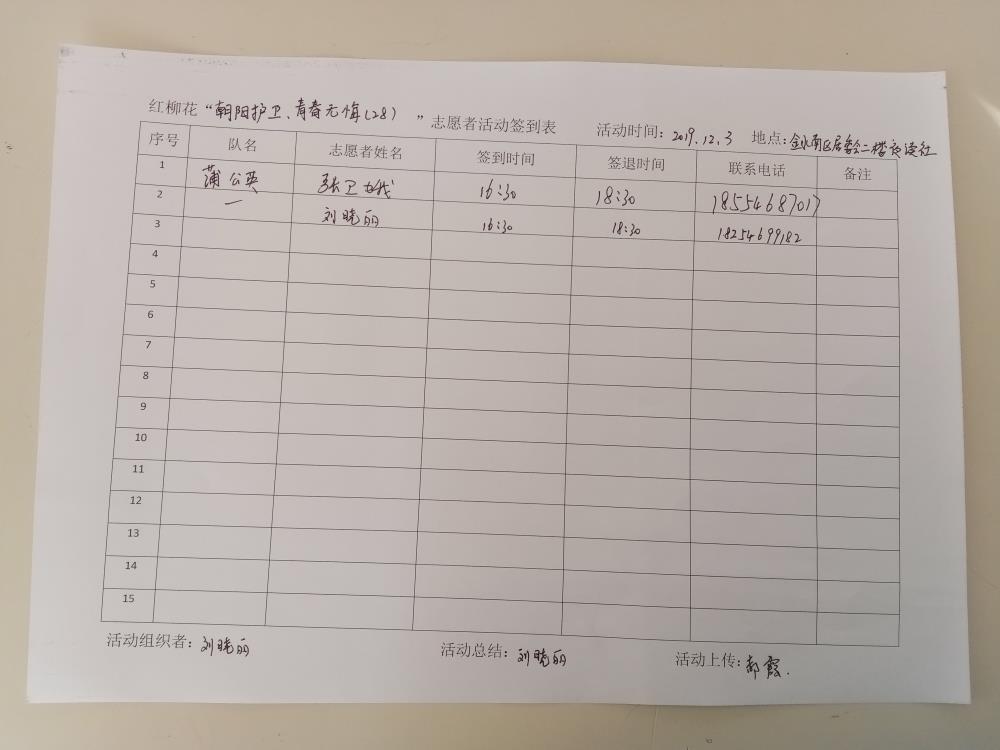 红柳花“朝阳护卫、青春无悔(28) ”志愿者活动签到表 活动时间: 2019.12.3 地点: 金水南区居委会二楼夜读社
序号 队名 志愿者姓名 签到时间 签退时间 联系电话 备注
1 蒲公英 张卫 16:30 18:30 18554687017
2 一 刘晓丽 16:30 18:30 18254699182
3
4
5
6
7
8
9
10
11
12
13
14
15
活动组织者: 刘晓丽 活动总结: 刘晓丽 活动上传: 郝霞.